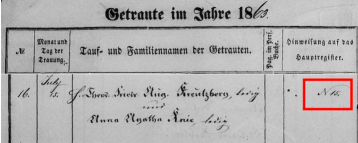 Getraute im Jahre 1863.
№ Monat und Tag der Trauung. Tauf- und Familiennamen der Getrauten. Pag. im Pers. Buche. Hinweisung auf das Hauptregister.
July
16. 15. Theod. Aug. Kreutzberg, ledig N 15.
und
Anna Agatha Knie, ledig